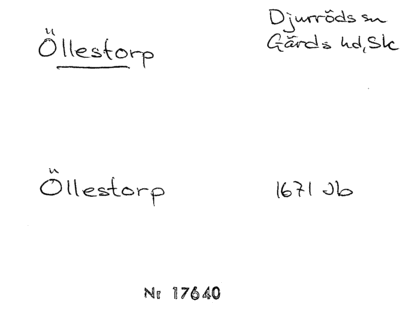 Öllestorp
Djurröds sn
Gärds hd, Sk
Öllestorp
1671 Jb
Nr 17640